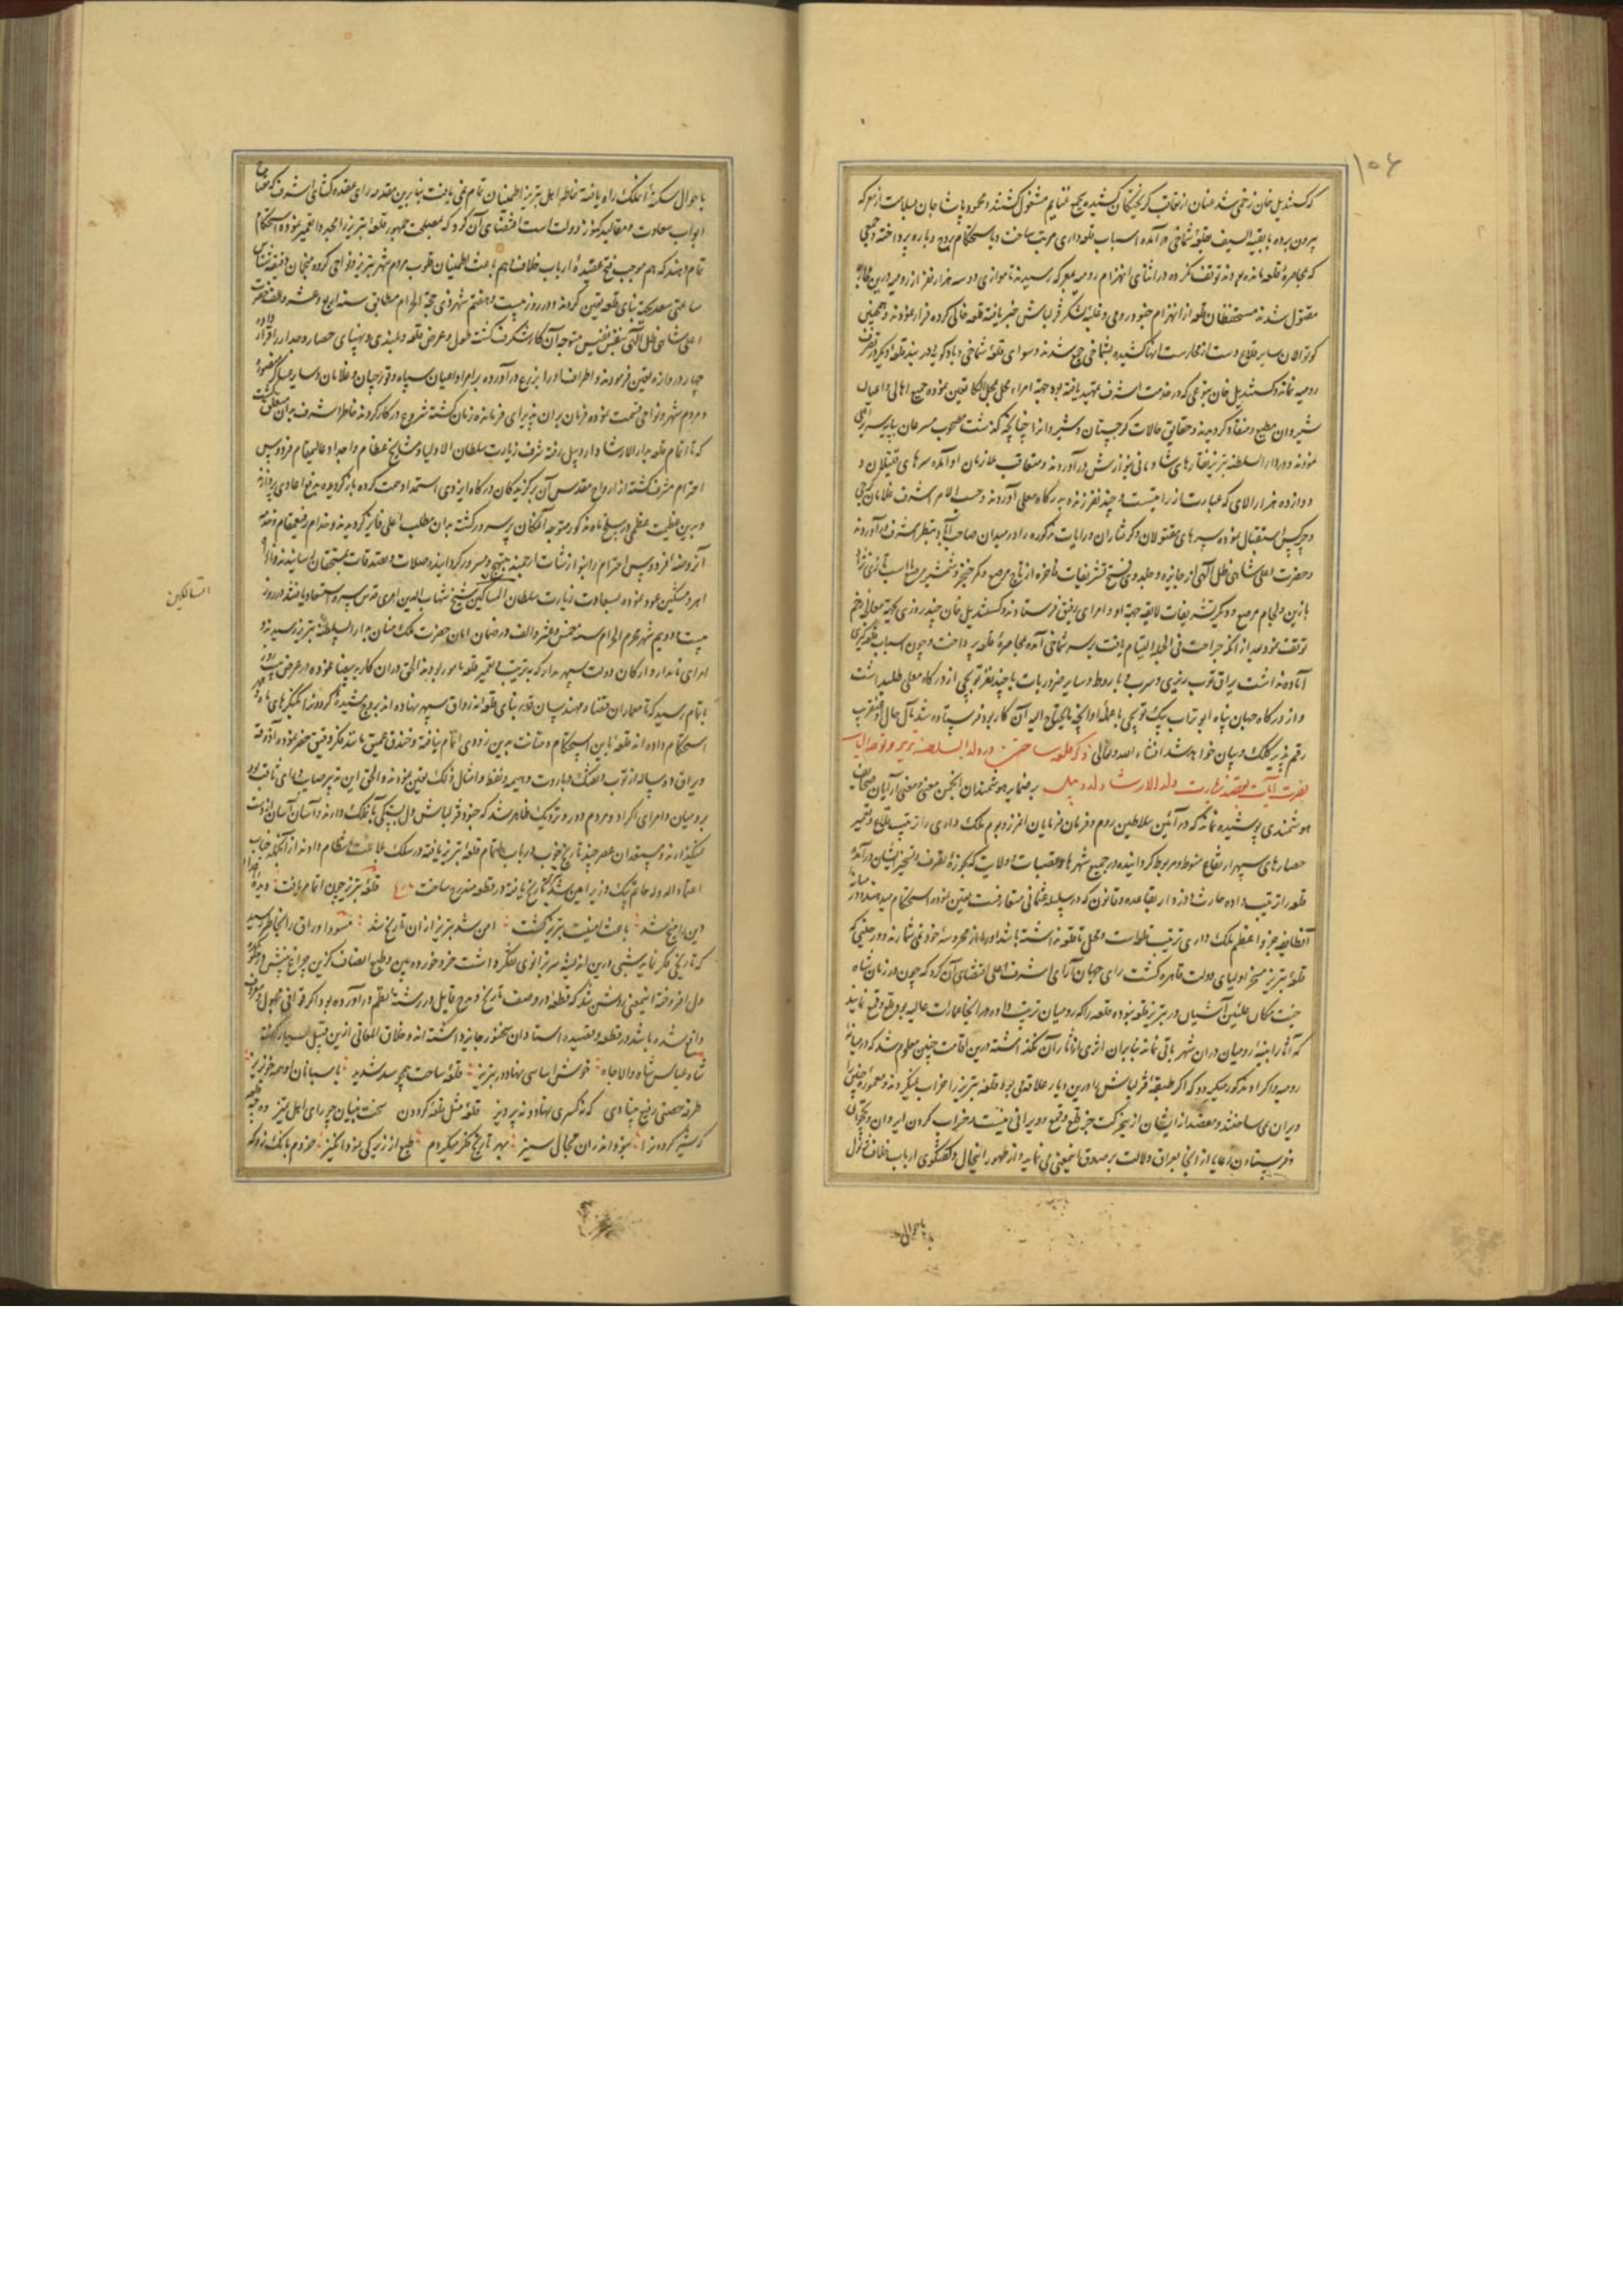 ۱۰۶
که کستندیل خان زخمی شد عنان از تعاقب گریختگان کشیده بجمع غنایم مشغول گشتند و محمود پاشا جان بسلامت از معرکه
بیرون برده با بقیة السیف بقلعهٔ شماخی در آمده اسباب قلعه داری مرتب ساخت و باستحکام برج و باره پرداخته و جمعی
که بمحاصرهٔ قلعه مانده بودند توقف نکرده در اثنای انهزام رومیه بمعرکه رسیدند تا موازی دو سه هزار نفر از رومیه درین
مقتول شدند مستحفظان قلعه از انهزام جنود رومی و غلبهٔ لشکر قزلباش خبر یافته قلعه خالی کرده فرار نمودند و همچنین
کوتوالان سایر قلاع دست از محارست آنها کشیده بشماخی جمع شدند و سوای قلعهٔ شماخی و بادکوبه و دربند قلعهٔ دیگر در تصرف
رومیه نماند و کستندیل خان بنوعی که در خدمت اشرف تمهید یافته بود جهة امراء محل بمحل الکا تعیین نموده جمیع اهالی و اعیان
شیروان مطیع و منقاد گردیدند و حقایق حالات گرجستان و شیروان را چنانچه گذشت مصحوب مسرعان بپایه سریر اعلی
نمودند و در دار السلطنهٔ تبریز نقارهای شادمانی بنوازش در آوردند و متعاقب ملازمان او آمده سرهای قتیلان و
دوازده هزار الای که عبارت از رایتست و چند نفر زنده بدرگاه معلی آوردند و حسب الامر اشرف غلامان گرجی
و چرکس استقبال نموده سرهای مقتولان و گرفتاران و رایات مذکوره را در میدان صاحب آباد بنظر اشرف در آوردند
و حضرت اعلی شاهی ظل الهی از جایزه و جلدوی فتح تشریفات فاخره از تاج مرصع و کمر خنجر و شمشیر مرصع و اسب تازی نژاد
با زین و لجام مرصع و دیگر تشریفات لایقه جهة او و امرای رفیق فرستادند و کستندیل خان چند روزی بجهة معالجه زخم
توقف نمود بعد از آنکه جراحت فی الجمله التیام یافت بر سر شماخی آمده بمحاصرهٔ قلعه پرداخت و چون اسباب قلعه گیری
آماده نداشت یراق توپ ریزی و سرب و باروط و سایر ضروریات با چند نفر توپچی از درگاه معلی طلب داشت
و از درگاه جهان پناه ابو تراب بیک توپچی با عمله او آنچه مایحتاج الیه آن کار بود فرستاده شد مآل حال او عنقریب
رقم پذیر کلک و بیان خواهد شد انشاء الله تعالی ذکر قلعه ساختن در دار السلطنهٔ تبریز و توجه رایات
نصرت آیات بقصد زیارت دار الارشاد اردبیل بر ضمایر هوشمندان انجمن معنی و معنی آرایان صحایف
هوشمندی پوشیده نماند که در آئین سلاطین روم و فرمان فرمایان آن مرز و بوم ملک داری را ترتیب قلاع و تعمیر
حصارهای سپهر ارتفاع منوط و مربوط گردانیده در جمیع شهرها و قصبات و ولایت که بحوزهٔ تصرف و تسخیر ایشان در آمده
قلعه را ترتیب داده حارث و آذوقه دار بقاعده و قانون که در سلسله عثمانی متعارفست تعیین نموده استحکام میدهند و در میانه
آنطایفه جزو اعظم ملک داری ترتیب قلاعست و محل تا قلعه نداشته باشد او را داخل محروسه خود نمی شمارند و در حینی که
قلعهٔ تبریز مسخر اولیای دولت قاهره گشت رای جهان آرای اشرف اعلی اقتضای آن کرد که چون در زمان شاه
جنت مکان علیین آشیان در تبریز قلعه نبوده قلعه را که رومیان ترتیب داده در آنجا عمارات عالیه بود قلع و قمع نمایند
که آثار ابنیهٔ رومیان در آن شهر باقی نماند بنابر آن اثری از آثار آن نگذاشته درین اقامت چنین معلوم شد که در میان
رومیه و اکراد مذکور میگردد که اگر طبقهٔ قزلباش را درین دیار علاقه می بود قلعهٔ تبریز را خراب نمیکردند و معموره چنین را
ویران نمی ساختند و مقصد ازیشان ازین حرکت جز قلع و قمع و ویرانی نیست و خراب کردن ایروان و نخجوان
و فرستادن رعایا از آنجا بعراق دلالت بر صدق اینمعنی می نماید و از ظهور اینحال و گفتگوی ارباب خلاف تزلزل
باحوال
باحوال سکنهٔ آنملک راه یافته خاطر اهل تبریز اطمینان تمام نمی یافت بنابرین مقدمه رای عقده گشای اشرف که مفتاح
ابواب سعادت و مقالید کنوز دولت است اقتضای آن کرد که بمصلحت جمهور قلعهٔ تبریز را مجددا تعمیر نموده استحکام
تمام دهند که هم موجب فتح عقیدهٔ ارباب خلاف و هم باعث اطمینان قلوب مردم شهر تبریز و نواحی گردد منجمان دقیقه شناس
ساعتی سعد بجهة بنای قلعه تعیین کردند و در روز بیست و هفتم شهر ذی حجة الحرام مطابق سنه اربع و عشر و الف حضرت
اعلی شاهی ظل الهی بنفس نفیس متوجه آن کار شگرف گشت طول و عرض قلعه و بلندی و پهنای حصار و جدار را قرار داده
چهار دروازه تعیین فرمودند و اطراف او را بزرع در آورده بر امرا و اعیان سپاه و قورچیان و غلامان و سایر عساکر منصوره
و مردم شهر و نواحی قسمت نموده فرمان بران پذیرای فرمانده زمان گشته شروع در کار کردند خاطر اشرف بدان متعلق گشت
که تا اتمام قلعه بدار الارشاد اردبیل رفته بشرف زیارت سلطان الاولیا و مشایخ عظام و اجداد عالیمقام فردوس
احترام مشرف گشته از ارواح مقدس آن برگزیدگان درگاه ایزدی استمداد همت کرده باز گردیده بدفع اعادی پردازند
و بدین عظیمت عظمی در سلخ ماه مذکور متوجه آنمکان پر سرور گشته بدان مطلب اعلی فایز گردیدند و خدام رفیعمقام و خدمه
آنروضهٔ فردوس احترام را بنوازشات ارجمند مبتهج و مسرور گردانیده صلات و تصدقات بمستحقان رسانیدند و از راه
اهر و مشکین عود نموده بسعادت زیارت سلطان المساکین شیخ شهاب الدین اهری قدس سره استسعاد یافتند در روز
السالکین
بیست و دویم شهر محرم الحرام سنه خمس و عشر و الف در ضمان امان حضرت ملک منان بدار السلطنهٔ تبریز رسیدند و
امرای نامدار و ارکان دولت سپهر مدار که بترتیب و تعمیر قلعه مامور بودند الحق در آن کار ید بیضا نموده در عرض بیست روز
باتمام رسید که تا معماران قضا و مهندسان قدر بنای قلعهٔ نه رواق سپهر نهاده اند بروج مشیدهٔ گردون را بکنگرهای ماه و مهر
استحکام داده اند قلعهٔ باین استحکام و متانت بدین زودی اتمام نیافته و خندق عمیق مانند فکر دقیق حفر نموده آذوقه
و یراق ده ساله از توپ و تفنگ و باروت و هیمه و نفط و امثال ذلک تعیین نمودند و الحق این تدبیر صایب و رای ثاقب بود
بر رومیان و امرای اکراد و مردم دور و نزدیک ظاهر شد که جنود قزلباش دل بستگی بآنملک دارند و آسان آسان از دست
نمیگذارند و مستعدان عصر چند تاریخ خوب در باب اتمام قلعهٔ تبریز یافته در سلک بلاغت انتظام دادند از آنجمله جناب
اعتماد الدوله حاتم بیک وزیر امن شد تبریز تاریخ یافته در قطعه مندرج ساخت قلعهٔ تبریز چون اتمام یافت دیدهٔ اعدا
دین رامیخ شد باعث امنیت تبریز گشت امن شد تبریز از آن تاریخ شد مسود اوراق را بخاطر رسید
که تاریخی فکر نماید شبی درین اندیشه سر بزانوی تفکر داشت خرد خورده بین و طبع انصاف گزین چراغ بینش در حجره
دل افروخته اینمعنی روشن شد که قطعهٔ در وصف تاریخ و مدح قایل در رشتهٔ نظم در آورده بود اگر قوافی مجهول و معروف
واقع شده باشد در قطعه و قصیده استادان سخنور جایز داشته اند و خلاق المعانی ازین قبیل بسیار گفته
شاه عباس شاه والا جاه خوش اساسی نهاد در تبریز قلعهٔ ساخت همچو سد شدید پاسبانان او همه خونریز
طرفه حصنی رفیع بنیادی که نه کسری نهاد و نه پرویز قلعهٔ مثل قلعهٔ گردون سخت بنیان چو رای اهل تمیز
که ستیز گردد ترا نبود اندران مجال ستیز بهر تاریخ فکر میکردم طبع از زیرکی نمود انگیز خردم بانگ زد که